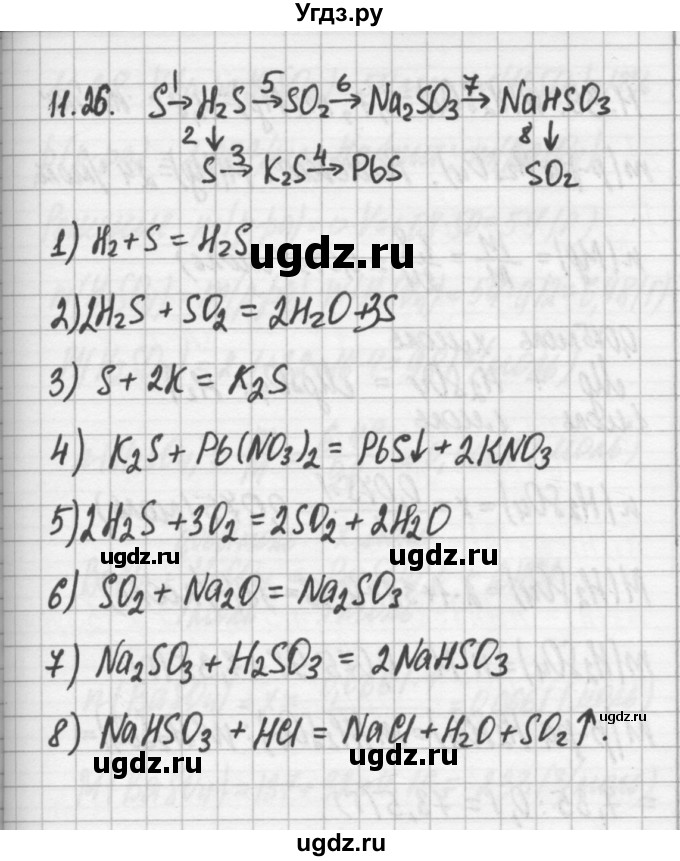 Угдз.ру
11.26. S →1 H₂S →5 SO₂ →6 Na₂SO₃ →7 NaHSO₃
2 ↓ 8 ↓
S →3 K₂S →4 PbS SO₂
1) H₂ + S = H₂S
ugdz.ru
2) 2H₂S + SO₂ = 2H₂O + 3S
3) S + 2K = K₂S
4) K₂S + Pb(NO₃)₂ = PbS↓ + 2KNO₃
5) 2H₂S + 3O₂ = 2SO₂ + 2H₂O
ugdz.ru ugdz.ru
6) SO₂ + Na₂O = Na₂SO₃
7) Na₂SO₃ + H₂SO₃ = 2NaHSO₃
8) NaHSO₃ + HCl = NaCl + H₂O + SO₂↑.
ugdz.ru
ugdz.ru ugdz.ru
ugdz.ru